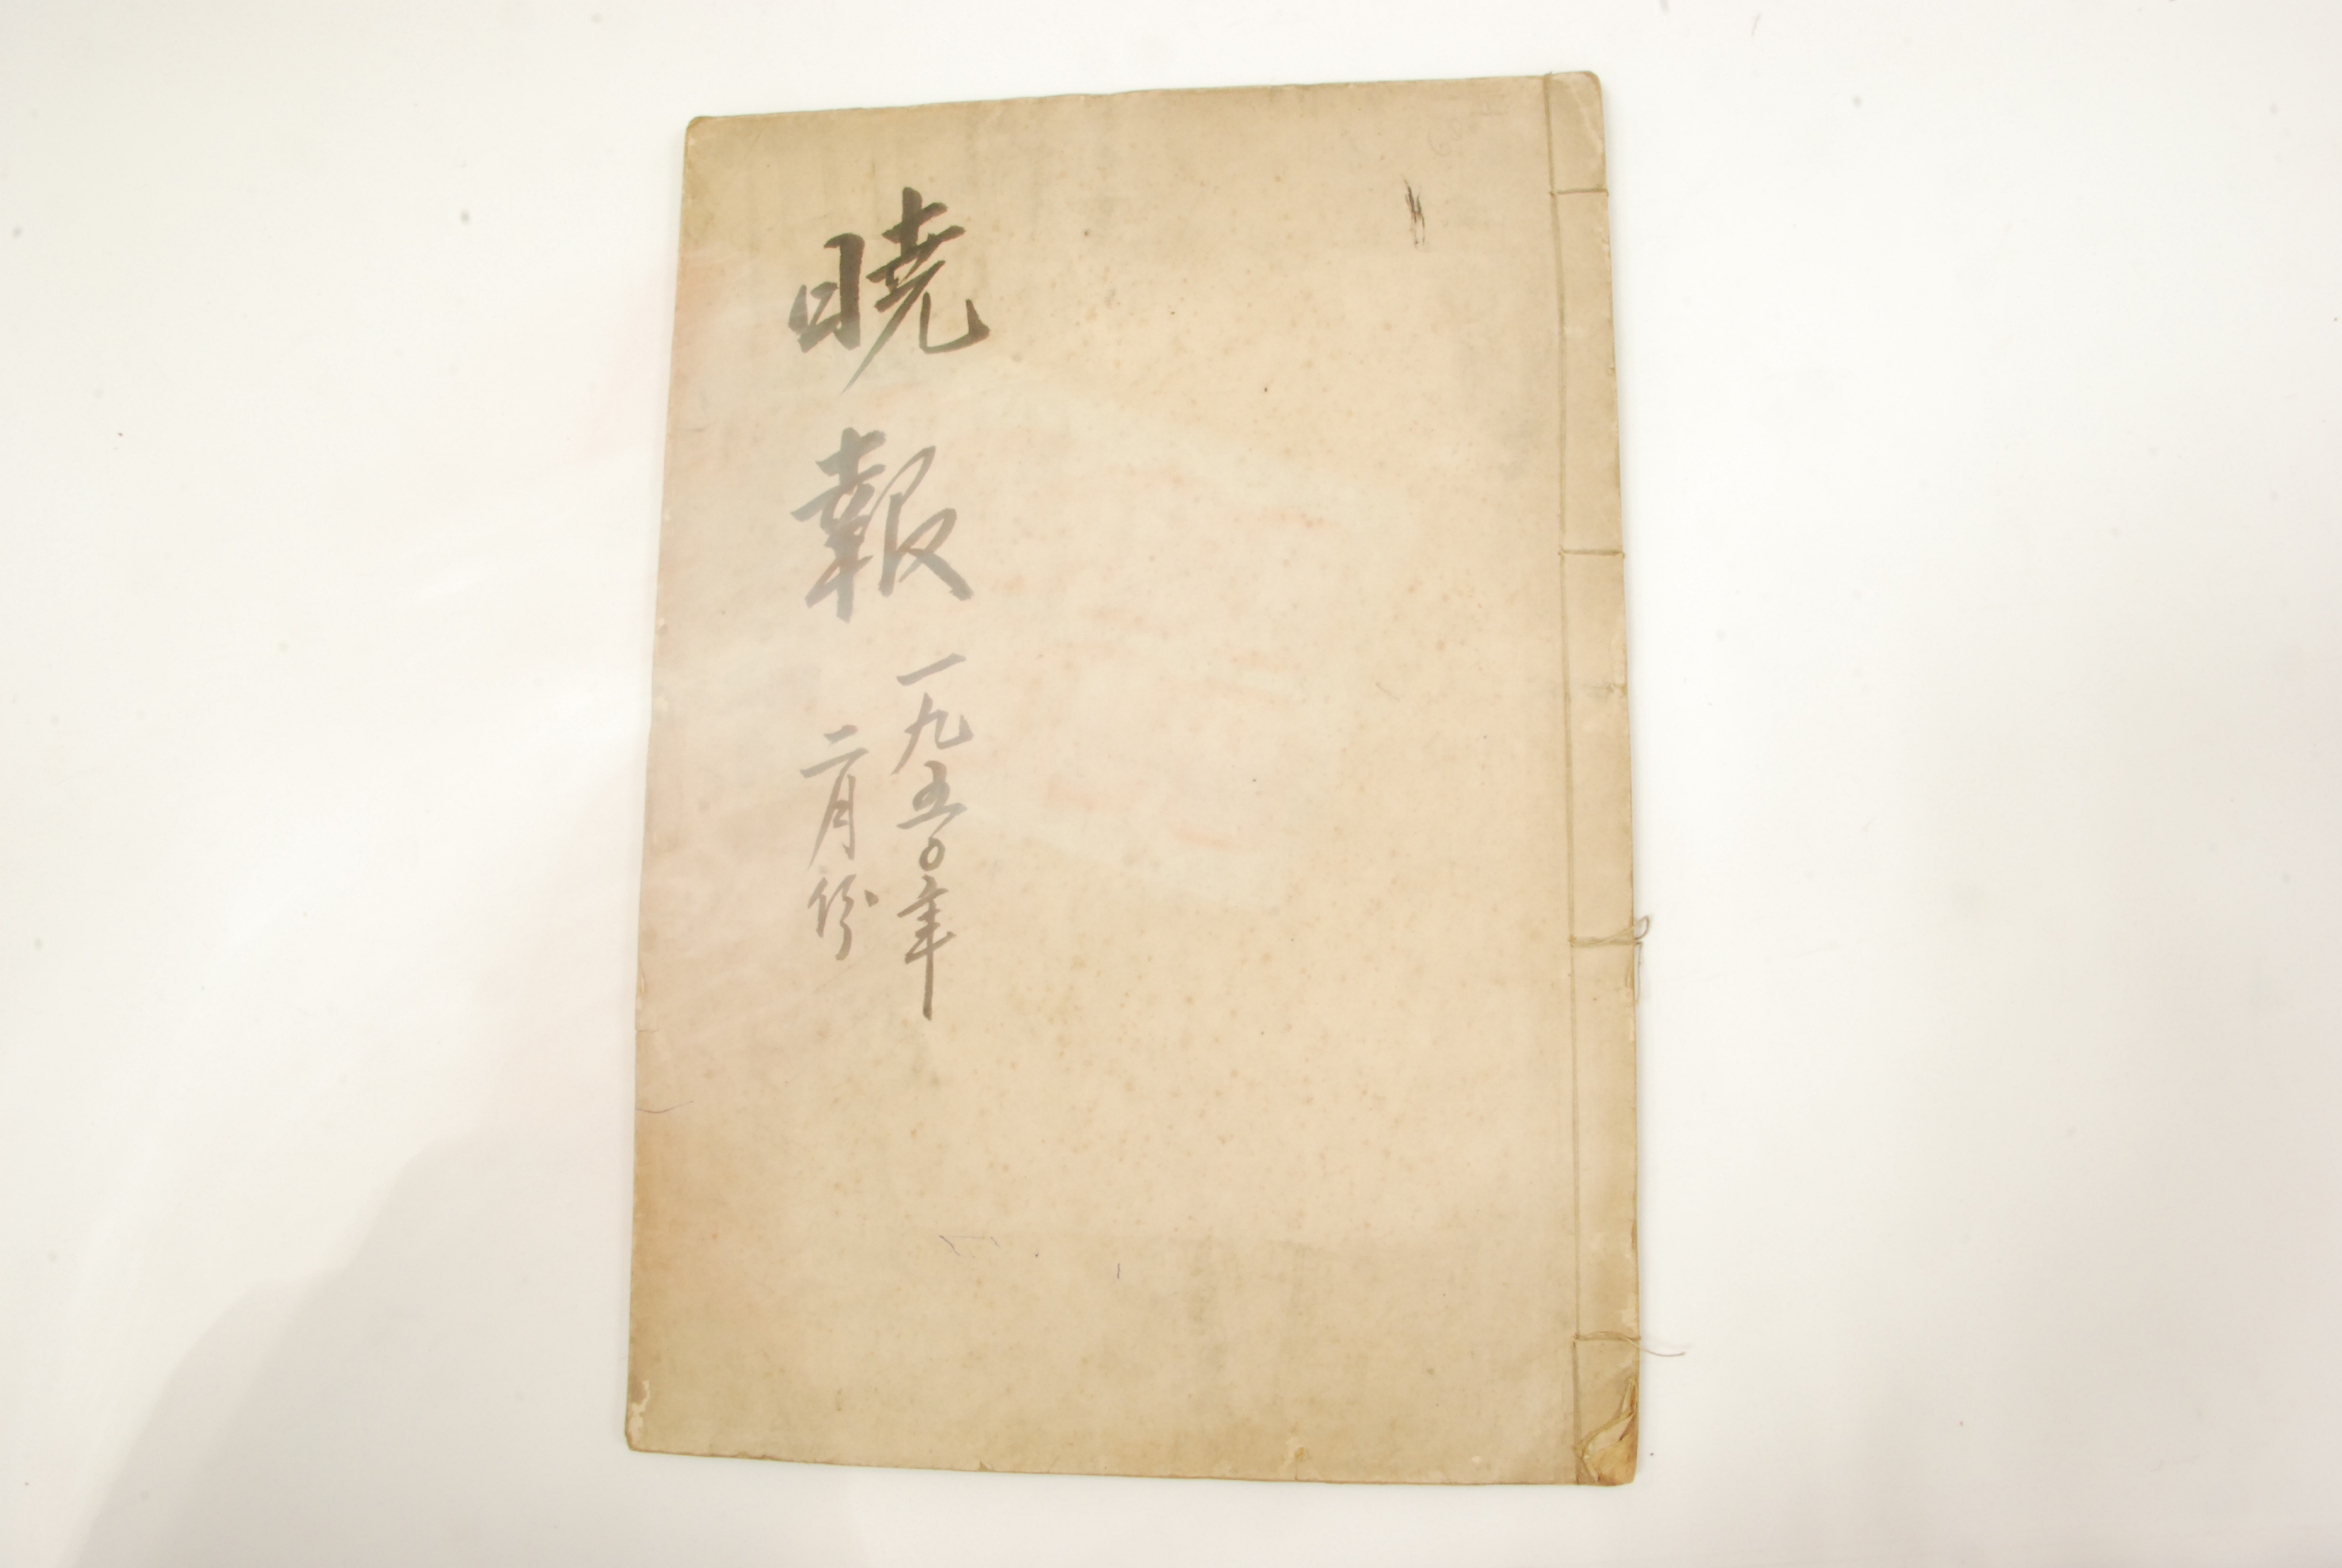 暁報
一九五〇年
二月份